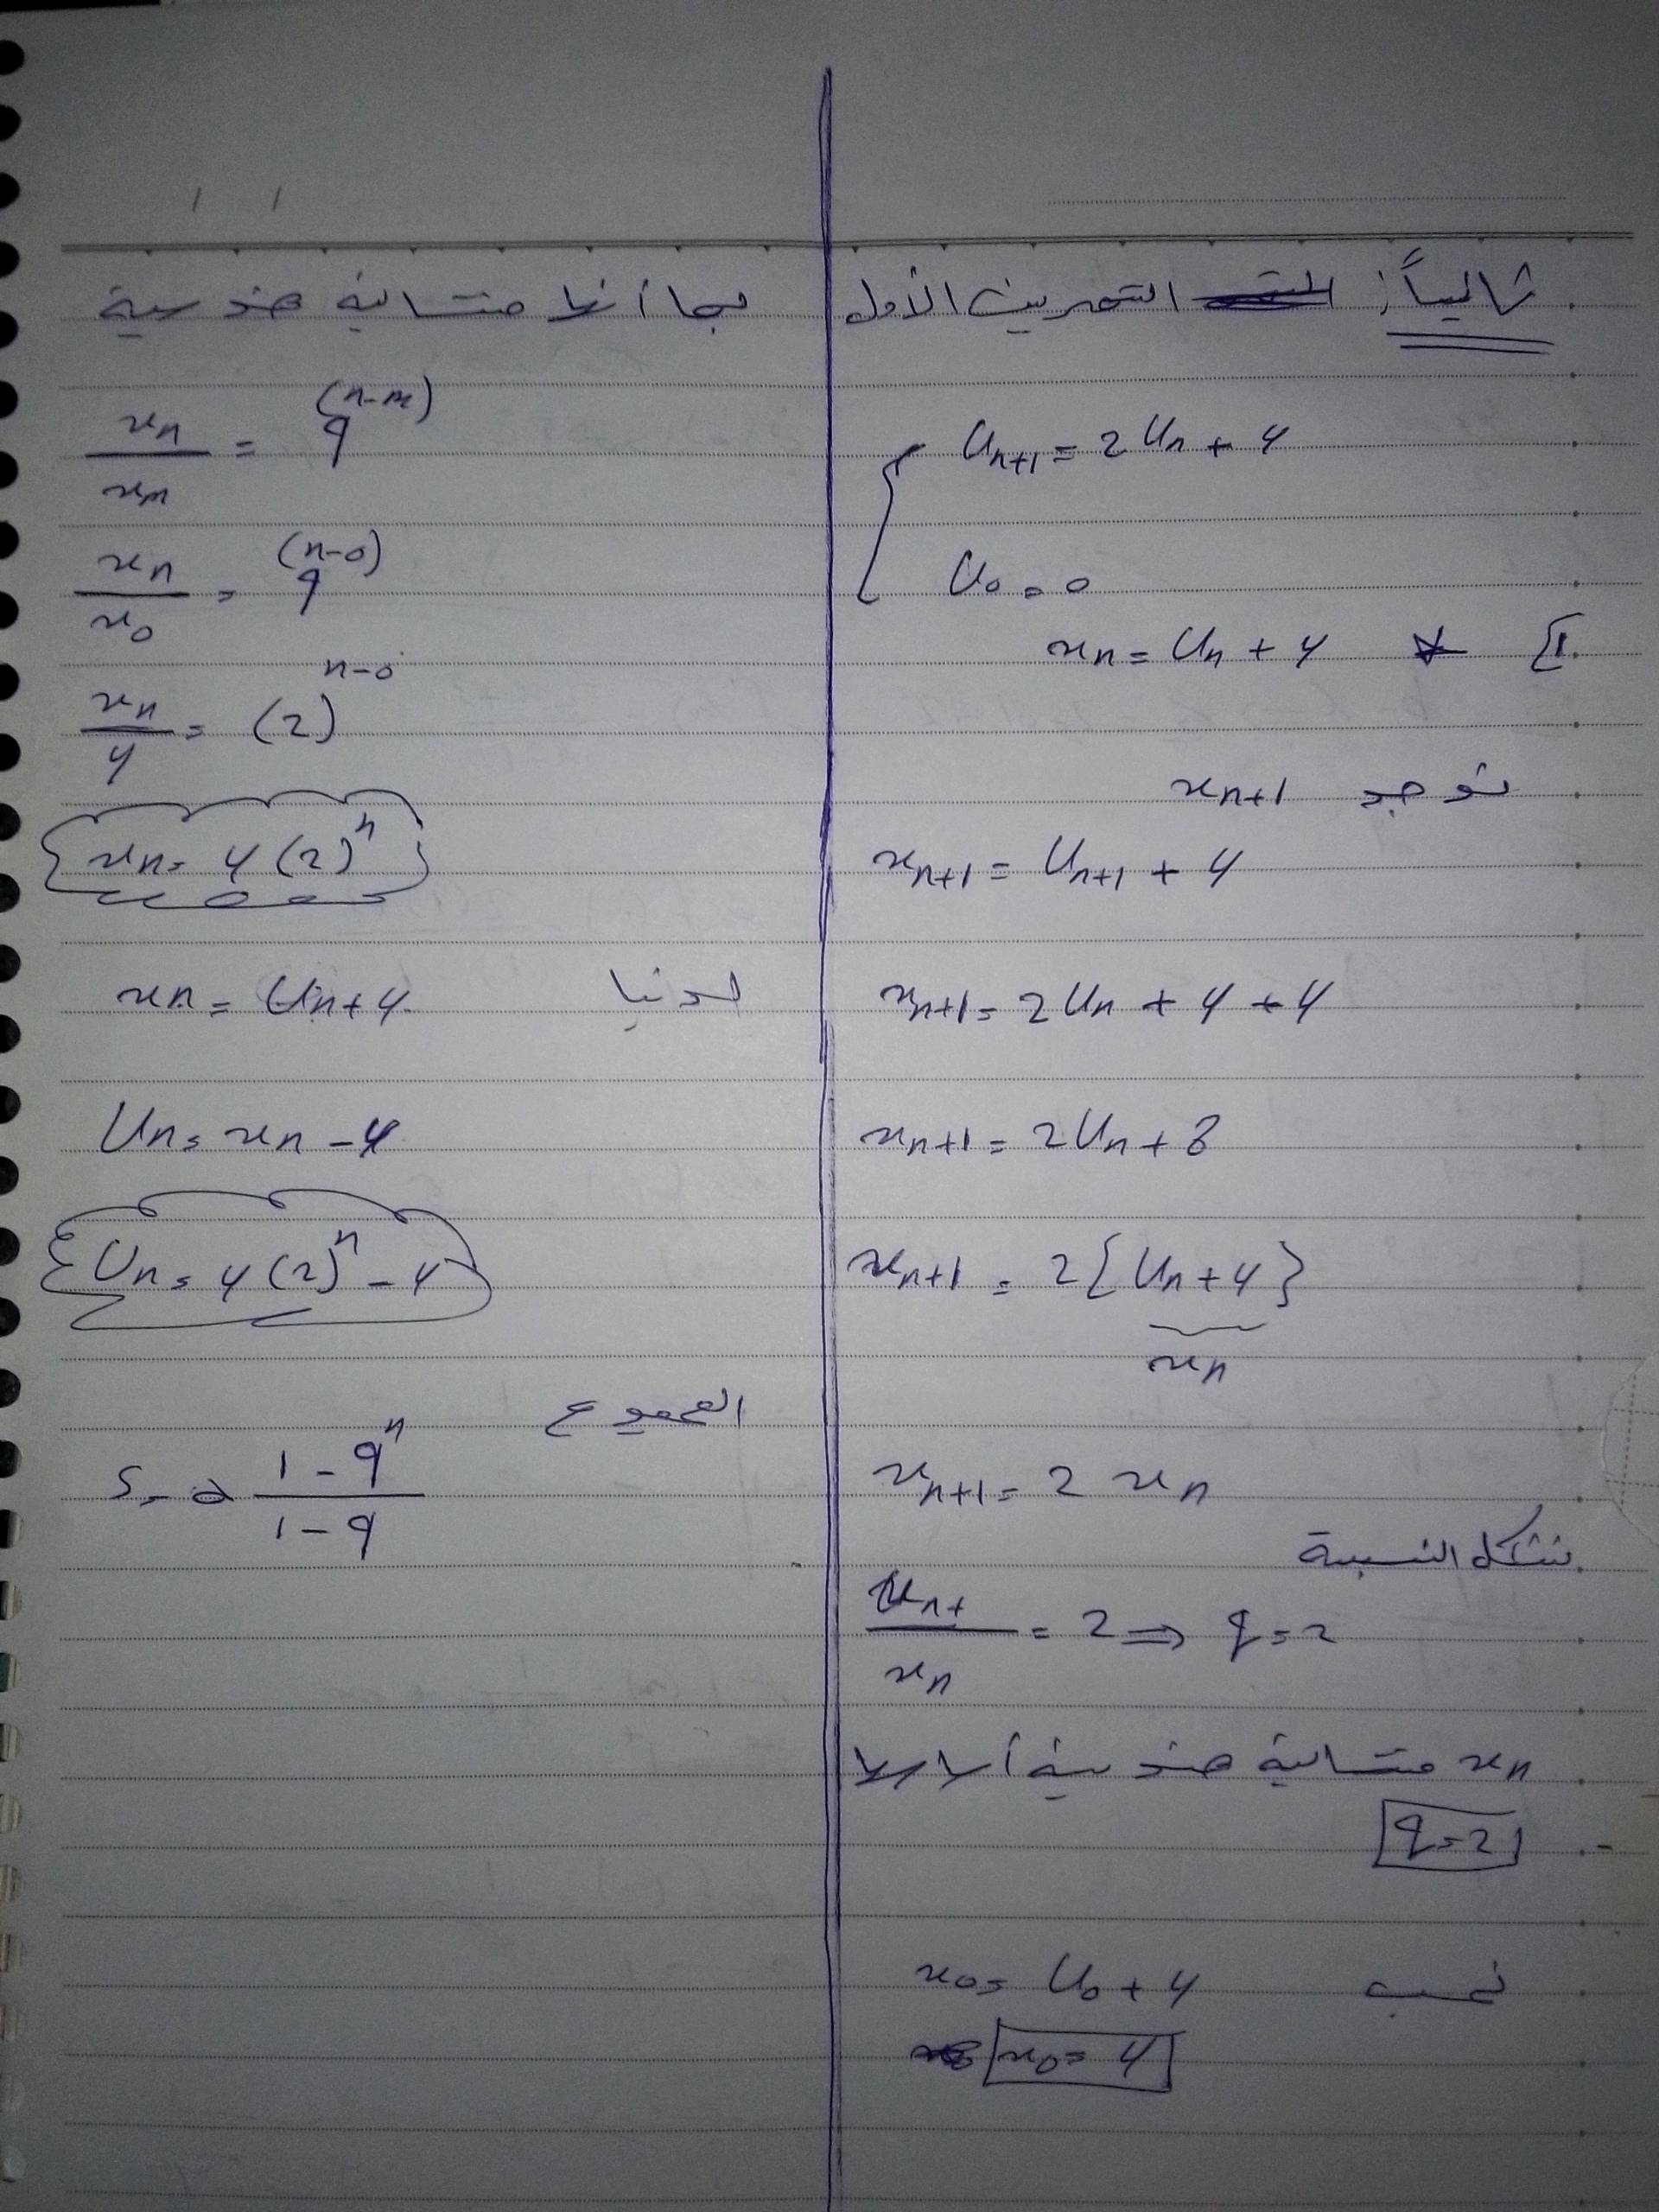 ثالثاً: التمرين الأول
U_{n+1} = 2U_n + 4
U_0 = 0
1] x_n = U_n + 4
نوجد x_{n+1}
x_{n+1} = U_{n+1} + 4
x_{n+1} = 2U_n + 4 + 4
x_{n+1} = 2U_n + 8
x_{n+1} = 2{U_n + 4}
x_n
x_{n+1} = 2 x_n
نشكل النسبة
x_{n+} / x_n = 2 ⇒ q = 2
x_n متتالية هندسية أساسها
q = 2
نحسب x_0 = U_0 + 4
x_0 = 4
بما أنها متتالية هندسية
x_n / x_m = q^{(n-m)}
x_n / x_0 = q^{(n-0)}
x_n / 4 = (2)^{n-0}
x_n = 4(2)^n
لدينا x_n = U_n + 4
U_n = x_n - 4
U_n = 4(2)^n - 4
المجموع
S = a (1 - q^n) / (1 - q)